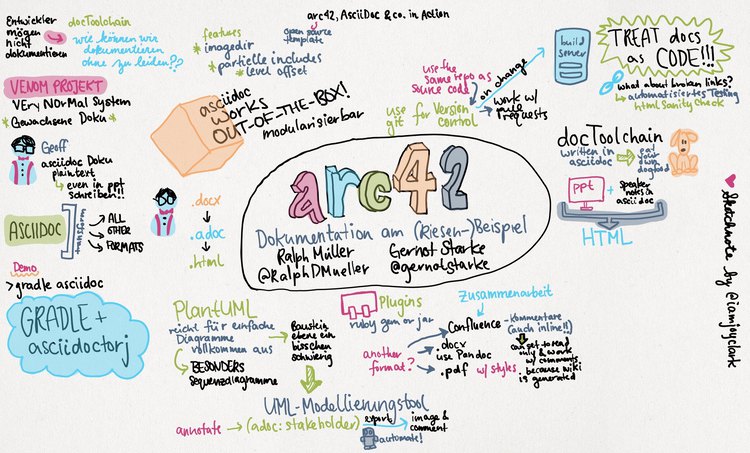 arc42, AsciiDoc & co. in Action
Entwickler
mögen
nicht
dokumentieren
docToolchain
wie können wir
dokumentieren
ohne zu leiden??
features
* imagedir
open source
template
* partielle includes
* level offset
VENOM PROJEKT
VEry NOrMal System
* Gewachsene Doku *
Geoff
asciidoc Doku
plaintext
even in ppt
schreiben!!
ASCIIDOC
transform
ALL
OTHER
FORMATS
Demo
> gradle asciidoc
GRADLE +
asciidoctorj
asciidoc
WORKS
OUT-OF-THE-BOX!
modularisierbar
.docx
.adoc
.html
arc42
Dokumentation am (Riesen-)Beispiel
Ralph Müller
@RalphDMueller
Gernot Starke
@gernotstarke
use the
same repo as
source code!
use
git for Version
control
on change
work w/
pull
requests
build
server
TREAT docs
as CODE!!!
what about broken links?
automatisiertes Testing
html Sanity Check
docToolchain
written in
asciidoc
eat
your
own
dogfood
ppt
+ speaker
notes in
asciidoc
HTML
PlantUML
reicht für einfache
Diagramme
vollkommen aus
BESONDERS
Sequenzdiagramme
Baustein
ebene ein
bisschen
schwierig
UML-Modellierungstool
annotate
(adoc: stakeholder)
export
image &
comment
automate!
Plugins
ruby gem or jar
another
format?
Zusammenarbeit
Confluence
.docx
use Pandoc
.pdf w/ styles
- kommentare
(auch inline!!)
can set to read
only & work
w/ comments
because wiki
is generated
Sketchnote by @iamjoyclark